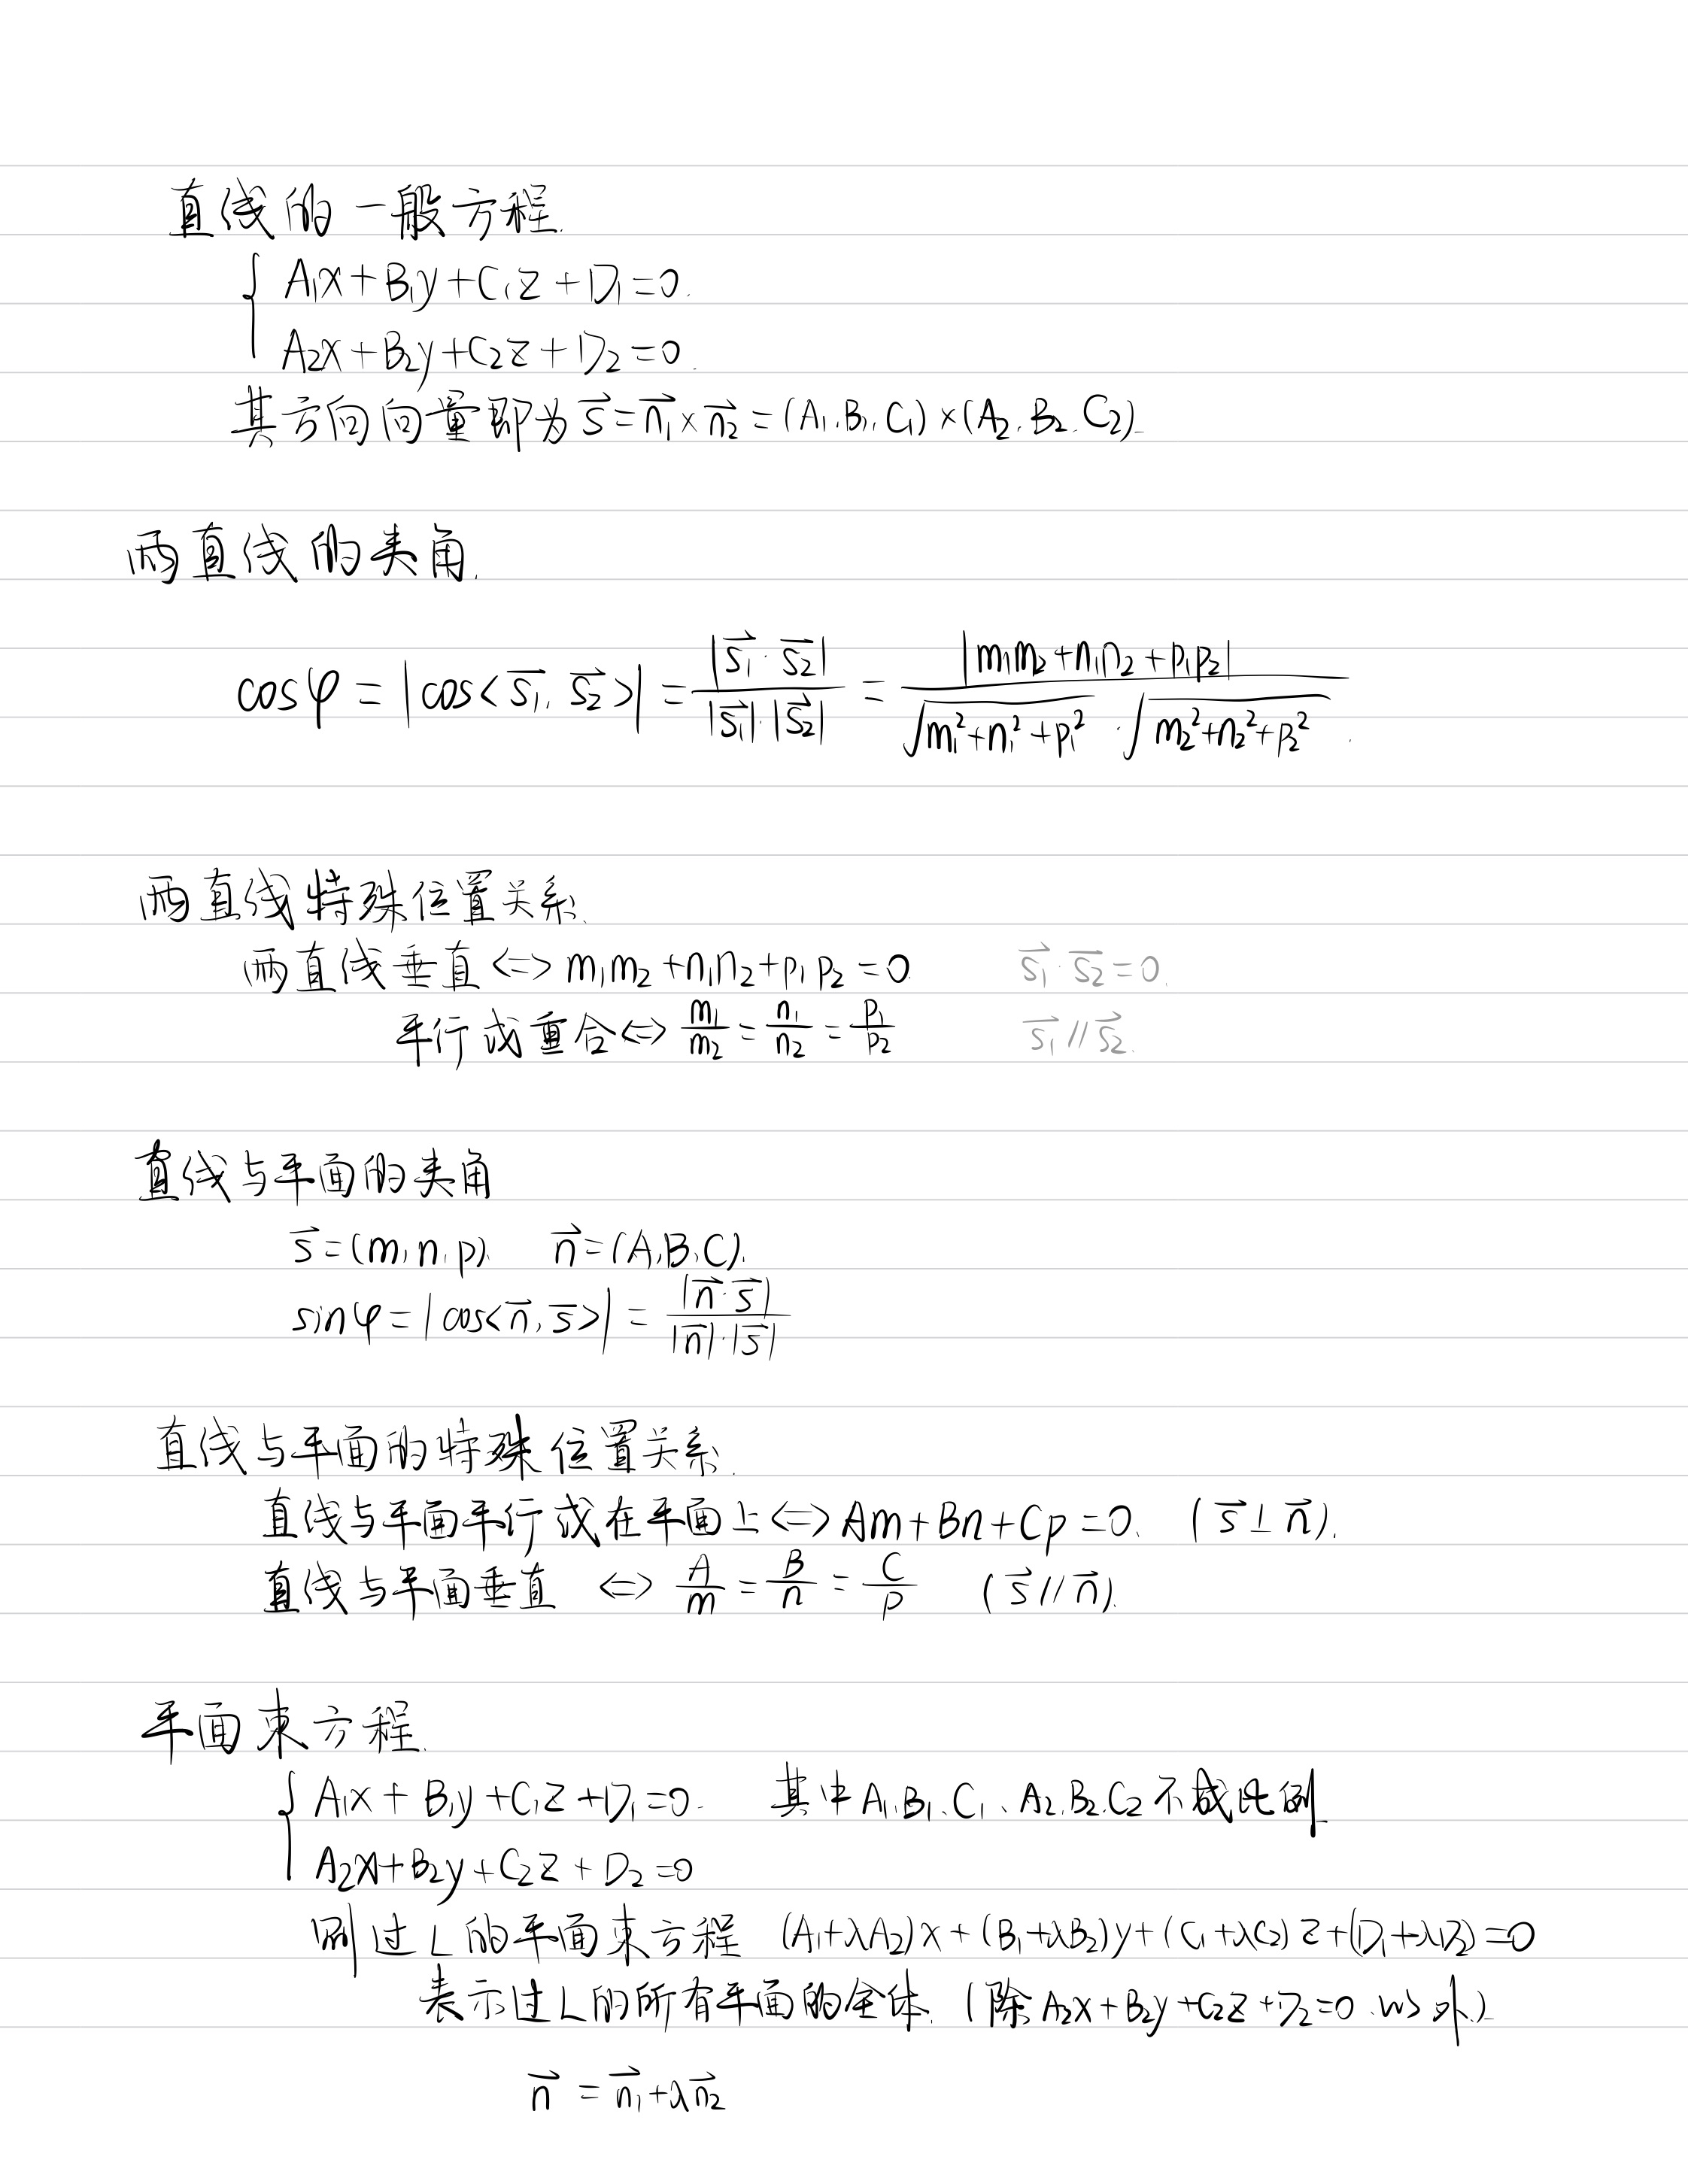 直线的一般方程.
A₁x+B₁y+C₁z+D₁=0.
A₂x+B₂y+C₂z+D₂=0.
其方向向量即为 s⃗=n⃗₁×n⃗₂=(A₁,B₁,C₁)×(A₂,B₂,C₂).
两直线的夹角.
cosφ=|cos<s⃗₁,s⃗₂>|=|s⃗₁·s⃗₂|/(|s⃗₁|·|s⃗₂|)=|m₁m₂+n₁n₂+p₁p₂|/(√(m₁²+n₁²+p₁²)·√(m₂²+n₂²+p₂²)).
两直线特殊位置关系.
两直线垂直<=>m₁m₂+n₁n₂+p₁p₂=0 s⃗₁·s⃗₂=0.
平行或重合<=>m₁/m₂=n₁/n₂=p₁/p₂ s⃗₁//s⃗₂.
直线与平面的夹角
s⃗=(m,n,p). n⃗=(A,B,C).
sinφ=|cos<n⃗,s⃗>|=|n⃗·s⃗|/(|n⃗|·|s⃗|)
直线与平面的特殊位置关系.
直线与平面平行或在平面上<=>Am+Bn+Cp=0. (s⃗⊥n⃗).
直线与平面垂直 <=> A/m=B/n=C/p (s⃗//n⃗).
平面束方程.
A₁x+B₁y+C₁z+D₁=0. 其中A₁,B₁,C₁、A₂,B₂,C₂不成比例.
A₂x+B₂y+C₂z+D₂=0
则过L的平面束方程 (A₁+λA₂)x+(B₁+λB₂)y+(C₁+λC₂)z+(D₁+λD₂)=0
表示过L的所有平面的全体.(除A₂x+B₂y+C₂z+D₂=0以外.)
n⃗=n⃗₁+λn⃗₂